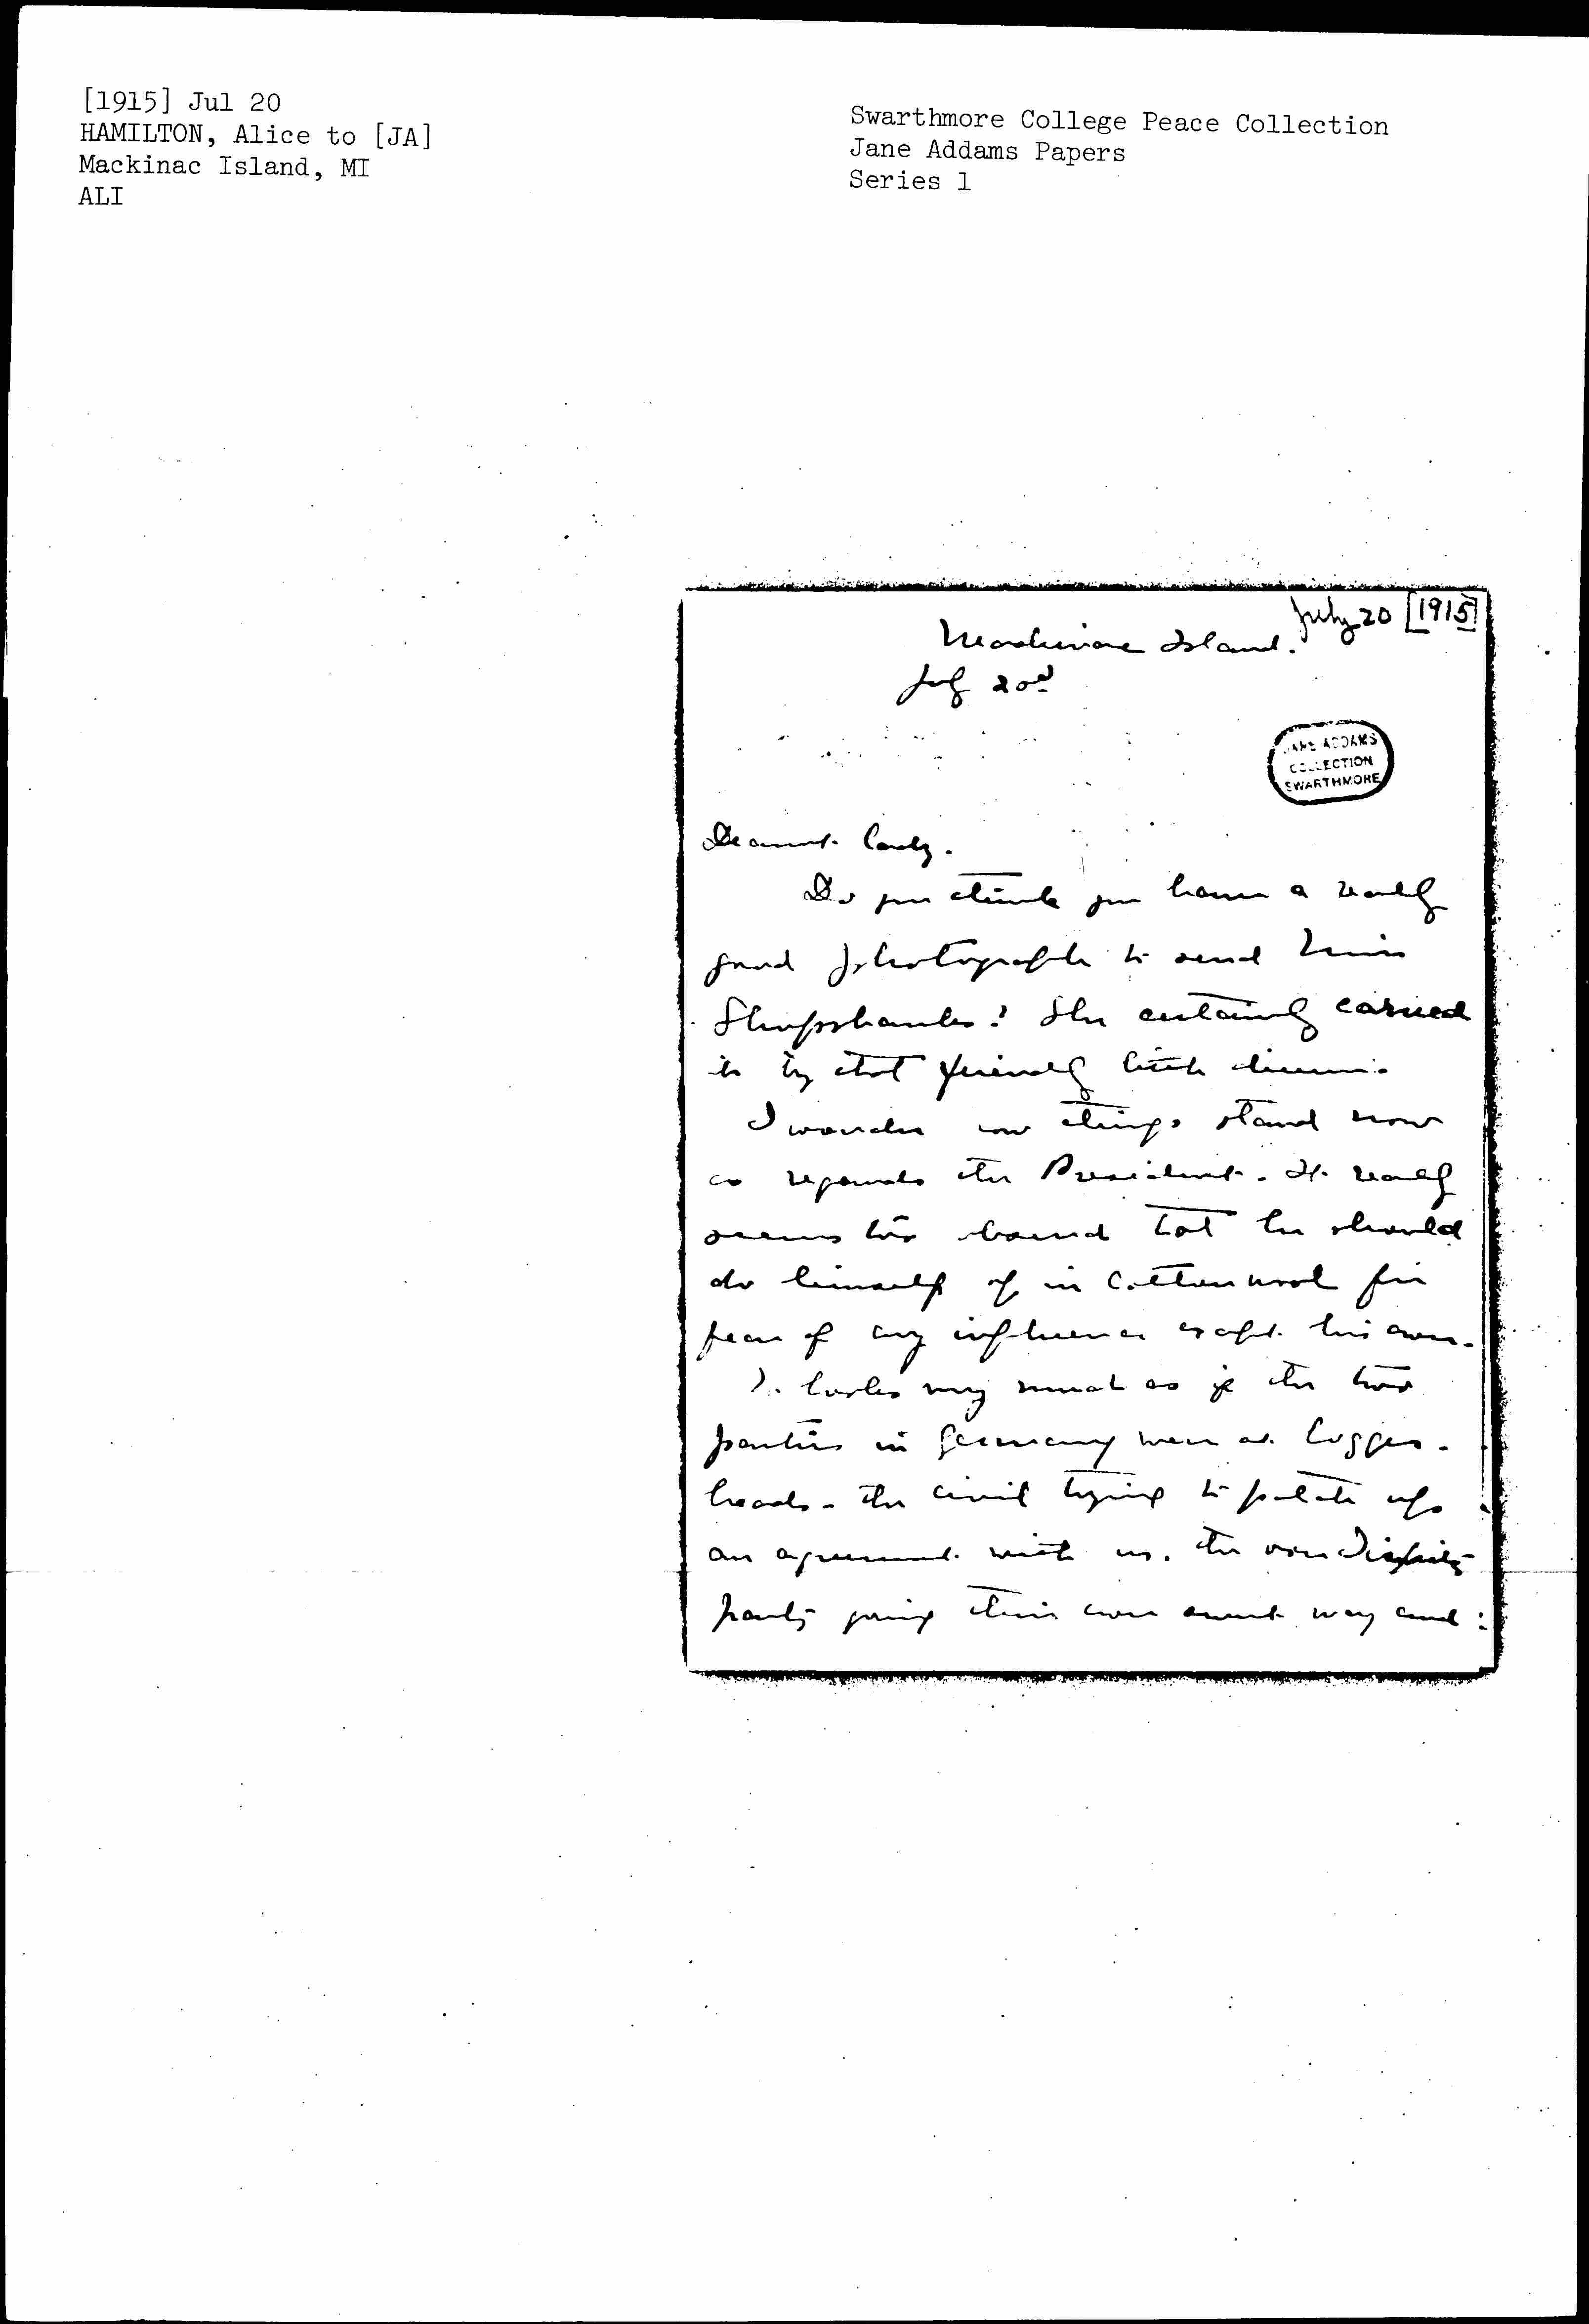 [1915] Jul 20
HAMILTON, Alice to [JA]
Mackinac Island, MI
ALI
Swarthmore College Peace Collection
Jane Addams Papers
Series 1
July 20 [1915]
Mackinac Island.
July 20th
JANE ADDAMS
COLLECTION
SWARTHMORE
Dearest Lady.
Do you think you have a really
good photograph to send Miss
Sheepshanks? She certainly earned
it by that friendly little dinner.
I wonder how things stand now
as regards the President. It really
seems too absurd that he should
do himself up in cotton wool for
fear of any influence except his own.
It looks very much as if the two
parties in Germany were at logger-
heads - the civil trying to patch up
an agreement with us, the von Tirpitz
party going their own sweet way and